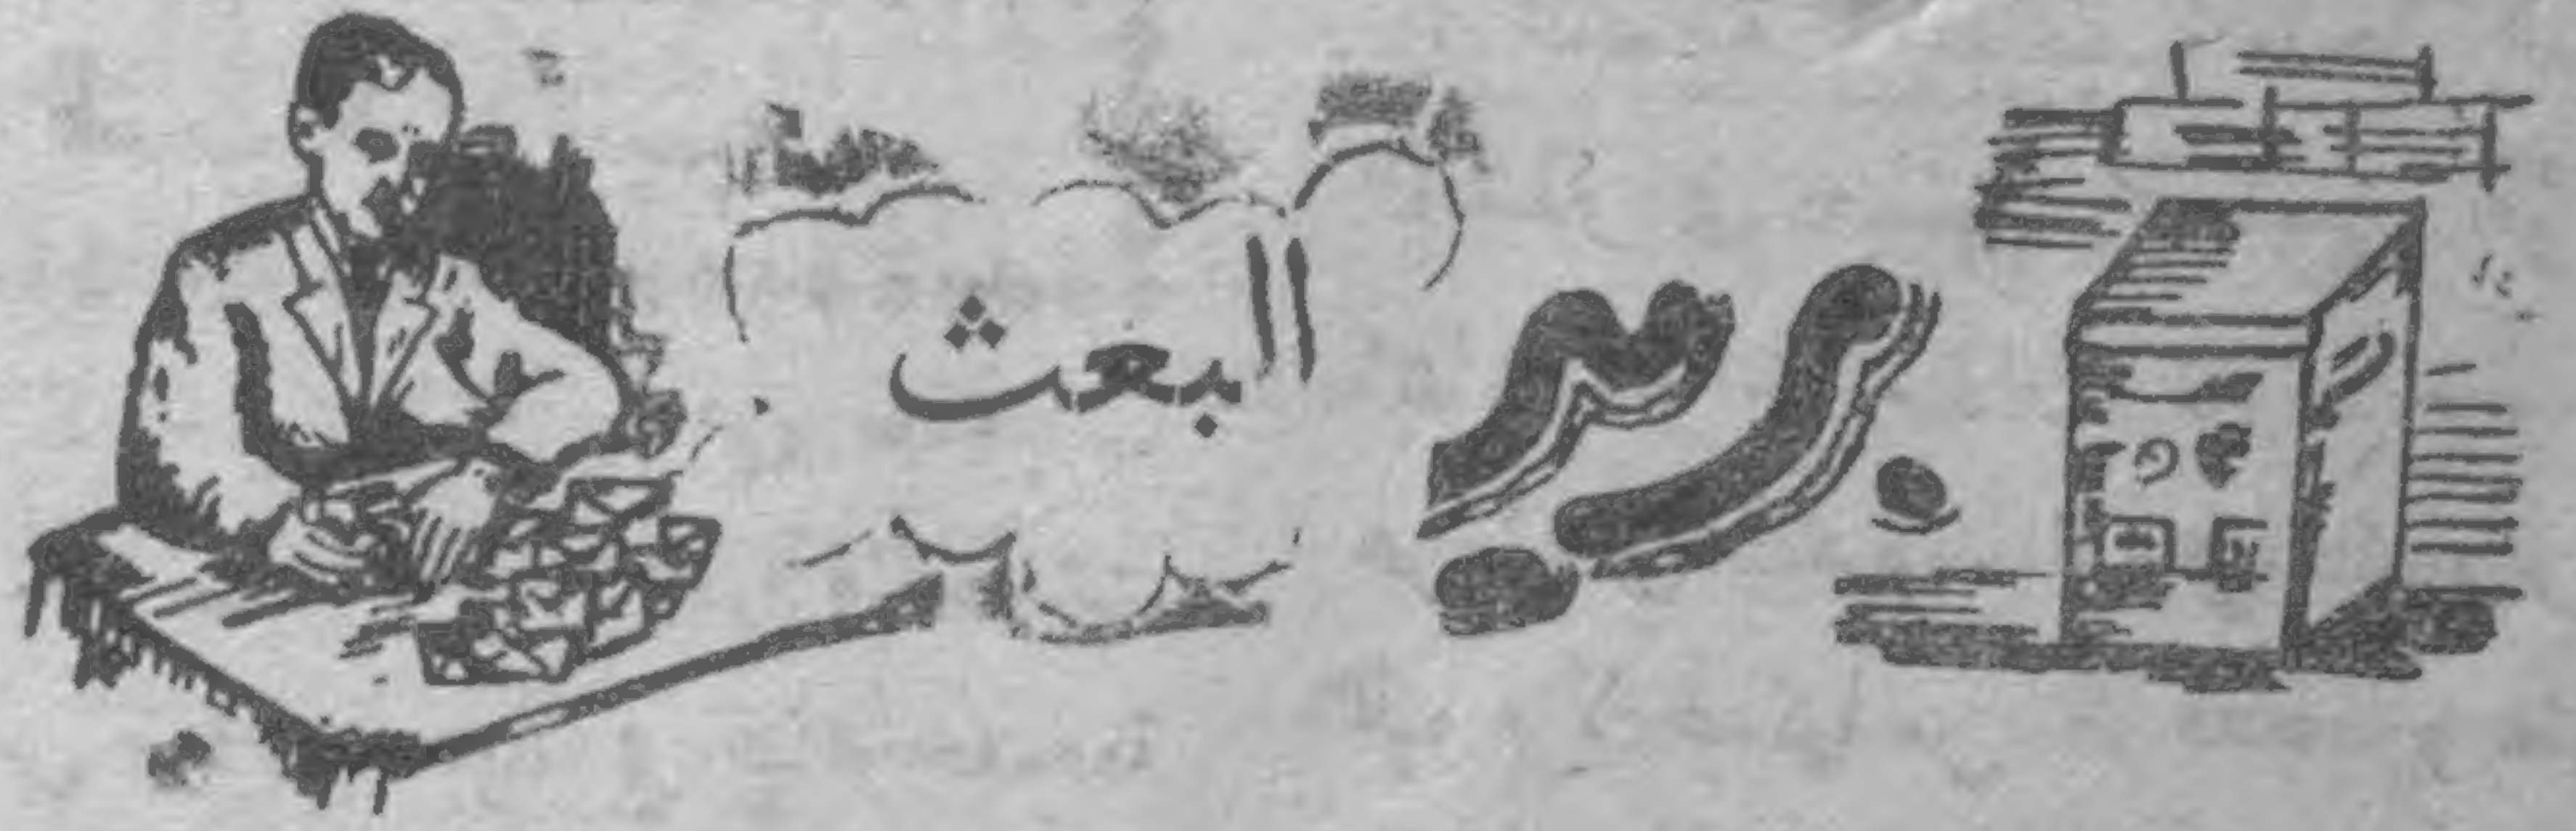 بريد البعث